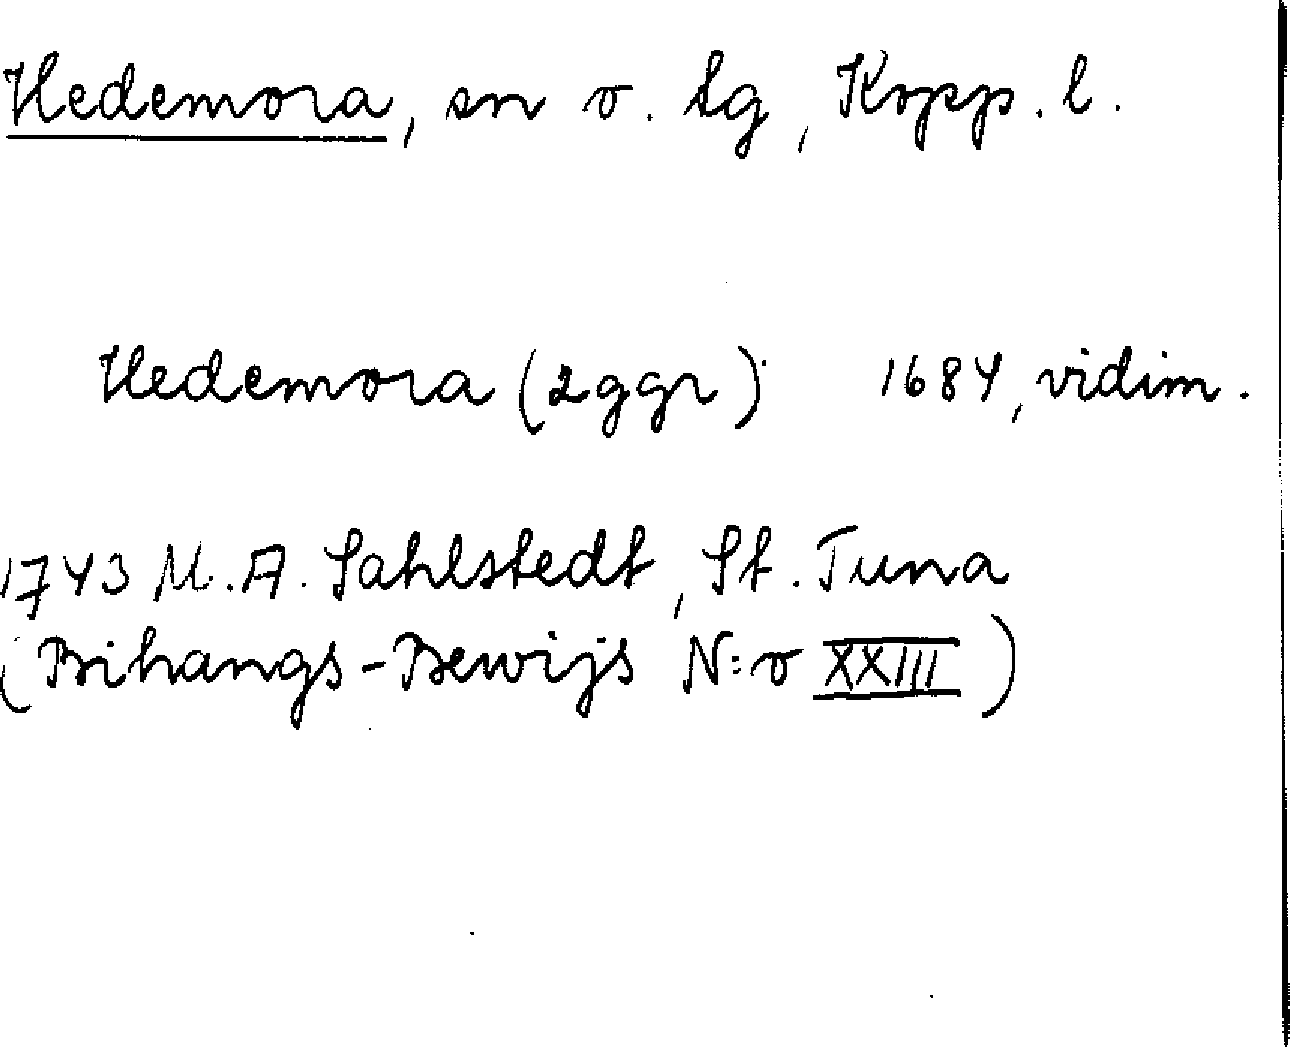 Hedemora, sn o. tg, Kopp. l.
Hedemora (2 ggr) 1684, vidim.
1743 M. A. Sahlstedt, St. Tuna
(Bihangs-Bewijs N:o XXIII)